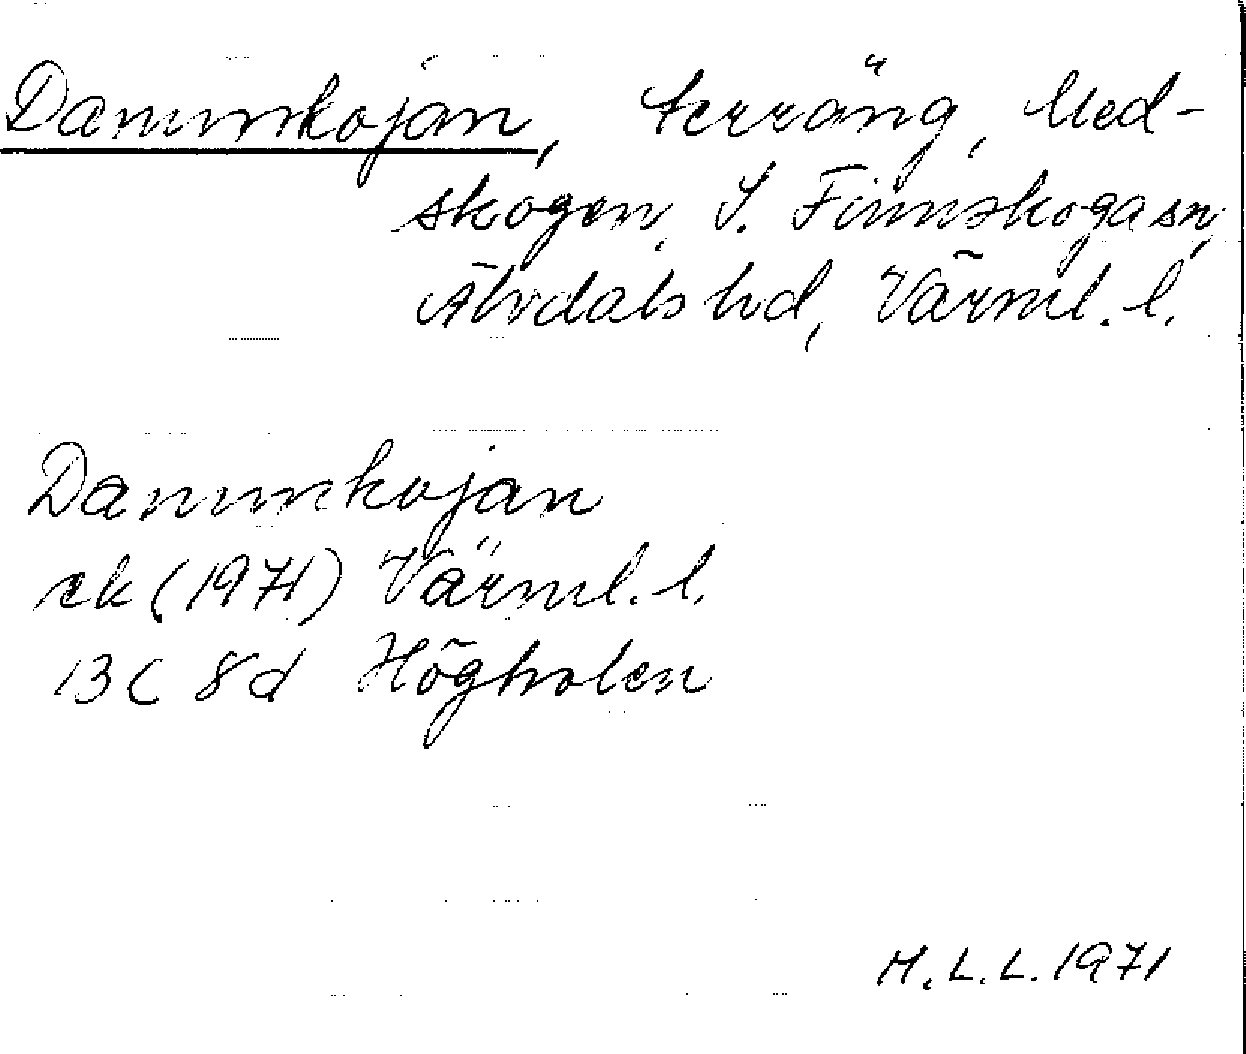 Dammkojan, terräng, Med-
skogen, S. Finnskoga sn,
Älvdals hd, Värml. l.
Dammkojan
ek (1971) Värml. l.
13C 8d Högholen
M.L.L. 1971